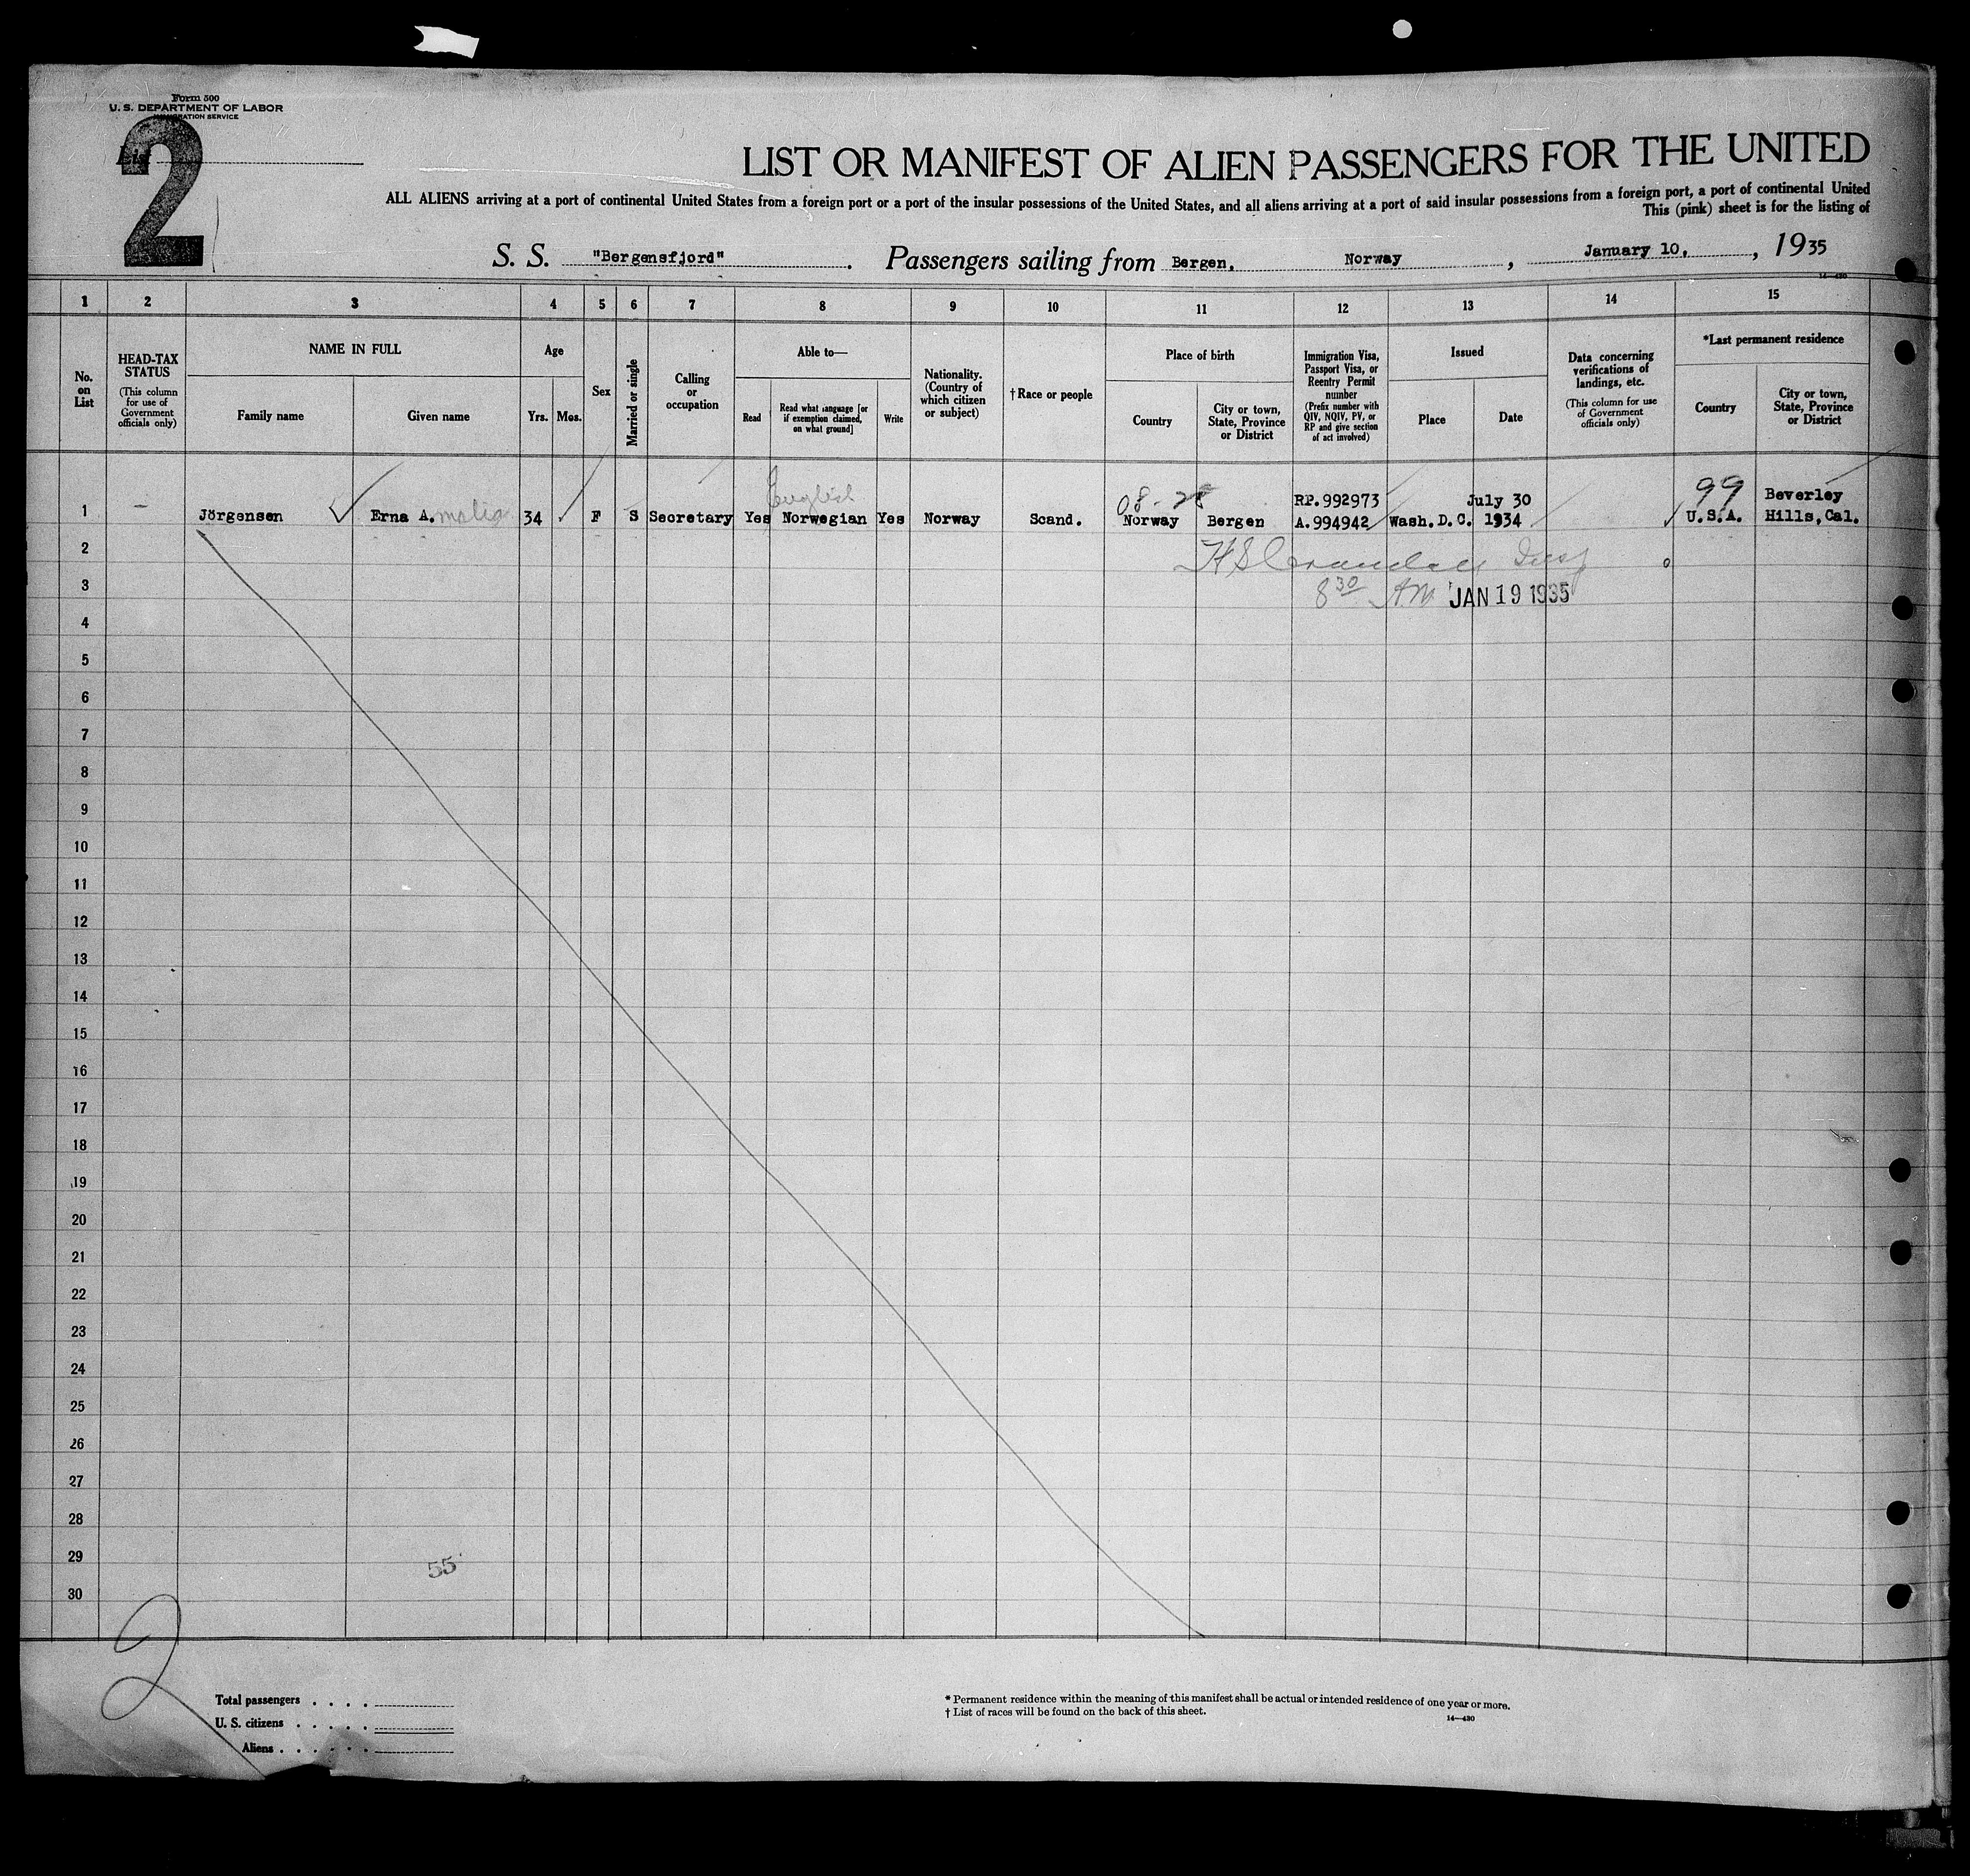 Form 500
U. S. DEPARTMENT OF LABOR
IMMIGRATION SERVICE
List 2
LIST OR MANIFEST OF ALIEN PASSENGERS FOR THE UNITED
ALL ALIENS arriving at a port of continental United States from a foreign port or a port of the insular possessions of the United States, and all aliens arriving at a port of said insular possessions from a foreign port, a port of continental United
This (pink) sheet is for the listing of
S. S. "Bergensfjord". Passengers sailing from Bergen, Norway, January 10, , 1935
14—430
1 2 3 4 5 6 7 8 9 10 11 12 13 14 15
No. on List
HEAD-TAX STATUS
(This column for use of Government officials only)
NAME IN FULL
Family name
Given name
Age
Yrs.
Mos.
Sex
Married or single
Calling or occupation
Able to—
Read
Read what language [or if exemption claimed, on what ground]
Write
Nationality. (Country of which citizen or subject)
†Race or people
Place of birth
Country
City or town, State, Province or District
Immigration Visa, Passport Visa, or Reentry Permit number
(Prefix number with QIV, NQIV, PV, or RP and give section of act involved)
Issued
Place
Date
Data concerning verifications of landings, etc.
(This column for use of Government officials only)
*Last permanent residence
Country
City or town, State, Province or District
English 08-28 RP.992973 July 30 99 Beverley
1 – Jörgensen Erna A.malia 34 F S Secretary Yes Norwegian Yes Norway Scand. Norway Bergen A.994942 Wash.D.C. 1934 U.S.A. Hills,Cal.
2
3 8 30 AM JAN 19 1935
4
5
6
7
8
9
10
11
12
13
14
15
16
17
18
19
20
21
22
23
24
25
26
27
28
29 55
30
2
Total passengers . . . .
U. S. citizens . . . . .
Aliens . . . . . .
* Permanent residence within the meaning of this manifest shall be actual or intended residence of one year or more.
† List of races will be found on the back of this sheet.
14—430